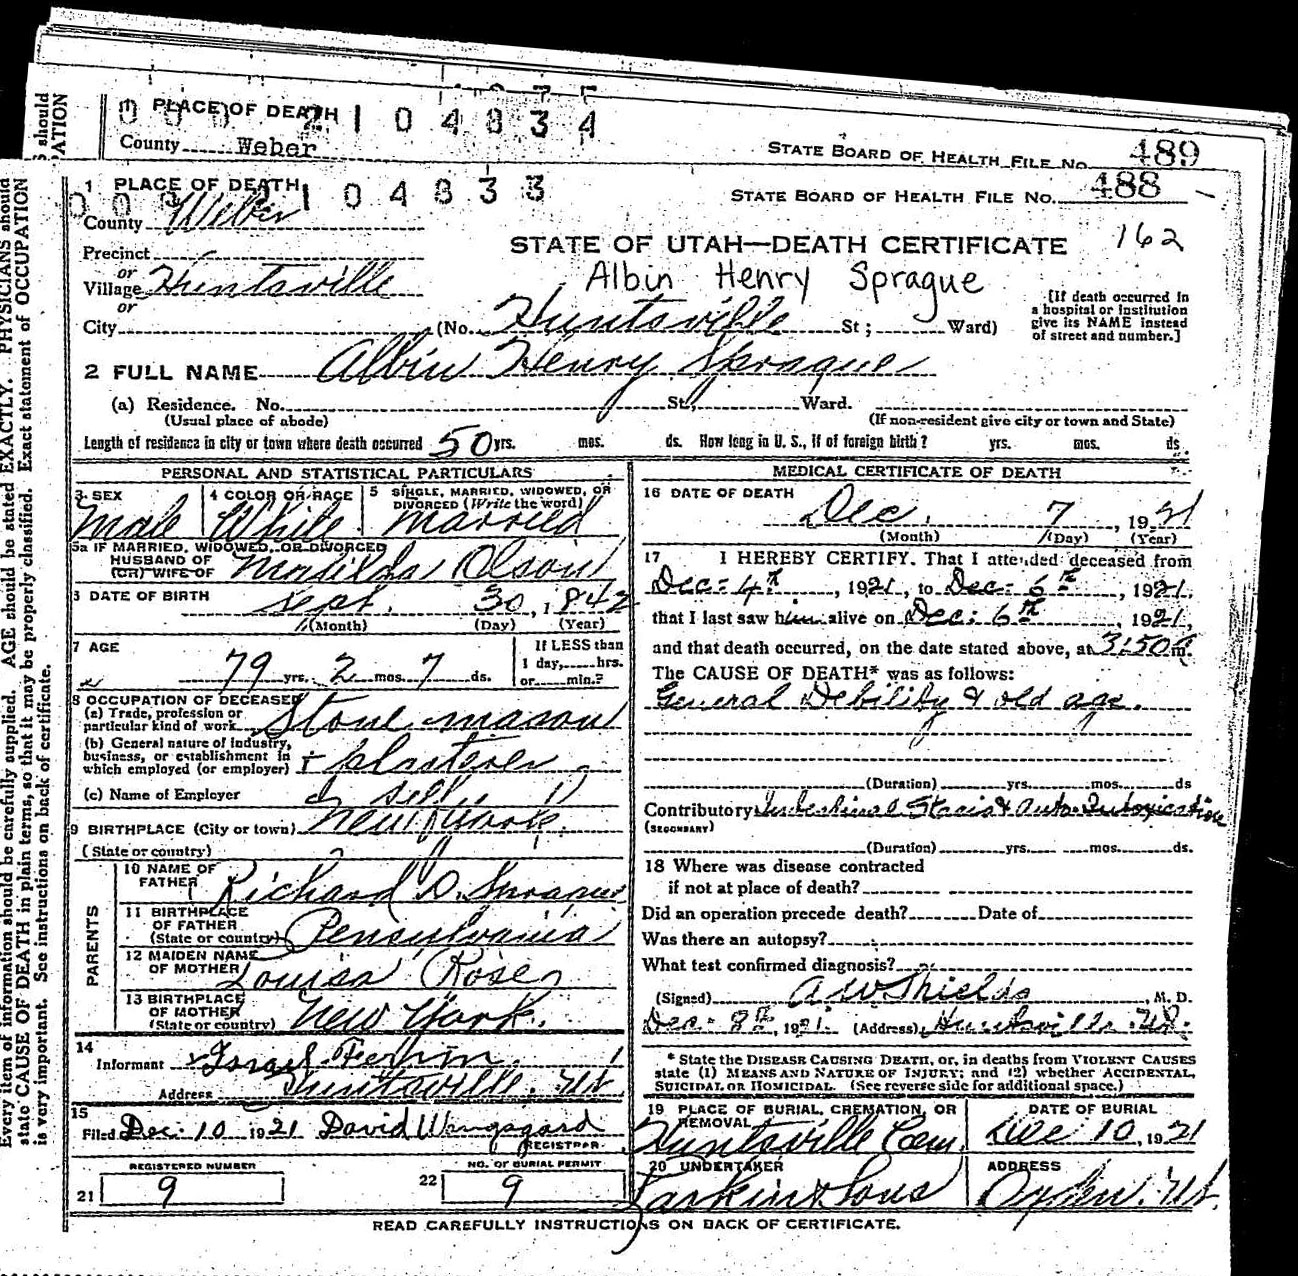 1 PLACE OF DEATH
0 0 0 2 1 0 4 8 3 4
County Weber
STATE BOARD OF HEALTH FILE No. 489
1 PLACE OF DEATH
1 0 4 8 3 3
STATE BOARD OF HEALTH FILE No. 488
County Weber
STATE OF UTAH—DEATH CERTIFICATE 162
Precinct
or
Village Huntsville
Albin Henry Sprague
or
City (No. Huntsville St; Ward)
[If death occurred in
a hospital or institution
give its NAME instead
of street and number.]
2 FULL NAME Albin Henry Sprague
(a) Residence. No. St., Ward.
(Usual place of abode) (If non-resident give city or town and State)
Length of residence in city or town where death occurred 50 yrs. mos. ds. How long in U. S., if of foreign birth? yrs. mos. ds.
PERSONAL AND STATISTICAL PARTICULARS
3 SEX 4 COLOR OR RACE 5 SINGLE, MARRIED, WIDOWED, OR
DIVORCED (Write the word)
Male White Married
5a IF MARRIED, WIDOWED, OR DIVORCED
HUSBAND OF
(OR) WIFE OF Matilda Olson
6 DATE OF BIRTH Sept. 30, 1842
(Month) (Day) (Year)
7 AGE
79 yrs. 2 mos. 7 ds.
If LESS than
1 day, hrs.
or min.?
8 OCCUPATION OF DECEASED
(a) Trade, profession or
particular kind of work Stone mason
(b) General nature of industry,
business, or establishment in
which employed (or employer) + plasterer
(c) Name of Employer self
9 BIRTHPLACE (City or town) New York
(State or country)
PARENTS
10 NAME OF
FATHER Richard D. Sprague
11 BIRTHPLACE
OF FATHER
(State or country) Pensylvania
12 MAIDEN NAME
OF MOTHER Louisa Rose
13 BIRTHPLACE
OF MOTHER
(State or country) New York.
14
Informant Israel
Address Huntsville. Ut
15
Filed Dec. 10 1921 David Wangsgard
REGISTRAR
REGISTERED NUMBER
21 9
NO. OF BURIAL PERMIT
22 9
MEDICAL CERTIFICATE OF DEATH
16 DATE OF DEATH
Dec. 7, 1921
(Month) (Day) (Year)
17 I HEREBY CERTIFY. That I attended deceased from
Dec. 4th, 1921, to Dec. 6th, 1921,
that I last saw him alive on Dec. 6th, 1921,
and that death occurred, on the date stated above, at 3:50 a m.
The CAUSE OF DEATH* was as follows:
General Debility & old age.
(Duration) yrs. mos. ds
Contributory Intestinal Stasis & Auto-Intoxication
(SECONDARY)
(Duration) yrs. mos. ds.
18 Where was disease contracted
if not at place of death?
Did an operation precede death? Date of
Was there an autopsy?
What test confirmed diagnosis?
(Signed) A W Shields, M. D.
Dec. 8th, 1921. (Address) Huntsville Ut.
* State the DISEASE CAUSING DEATH, or, in deaths from VIOLENT CAUSES
state (1) MEANS AND NATURE OF INJURY; and (2) whether ACCIDENTAL,
SUICIDAL OR HOMICIDAL. (See reverse side for additional space.)
19 PLACE OF BURIAL, CREMATION, OR
REMOVAL
Huntsville Cem.
DATE OF BURIAL
Dec 10, 1921
20 UNDERTAKER
Larkin & Sons
ADDRESS
Ogden, Ut.
READ CAREFULLY INSTRUCTIONS ON BACK OF CERTIFICATE.
Every item of information should be carefully supplied. AGE should be stated EXACTLY. PHYSICIANS should
state CAUSE OF DEATH in plain terms, so that it may be properly classified. Exact statement of OCCUPATION
is very important. See instructions on back of certificate.